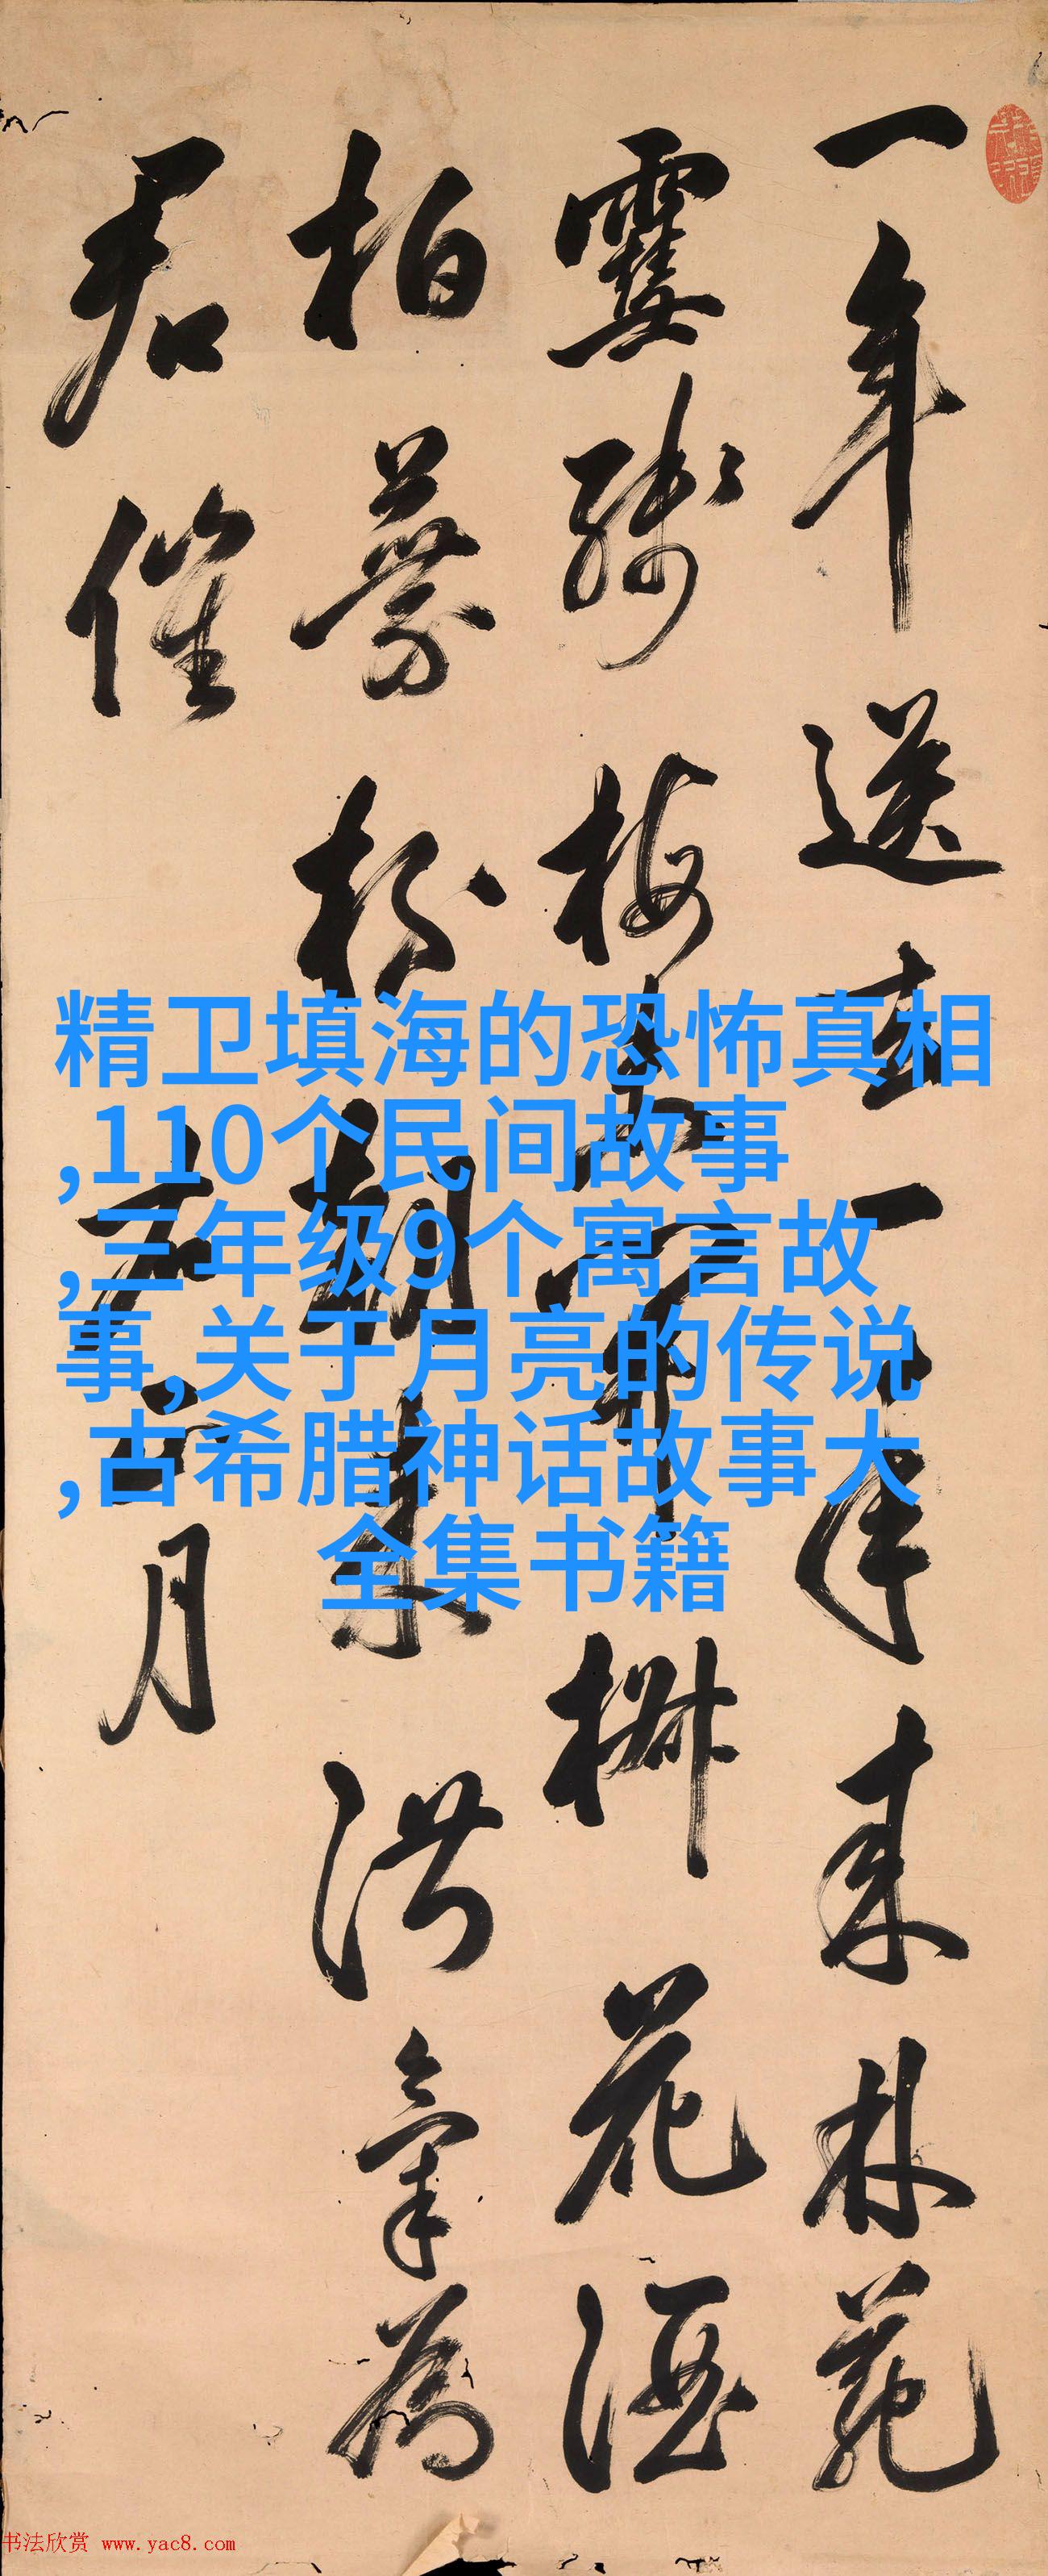 一年送去一年来林苑
殘梅開椒花酒
柏葉杯朝来淑氣為
君催
右正月
精卫填海的恐怖真相
,110个民间故事
,三年级9个寓言故
事,关于月亮的传说
,古希腊神话故事大
全集书籍
书法欣赏 www.yac8.com